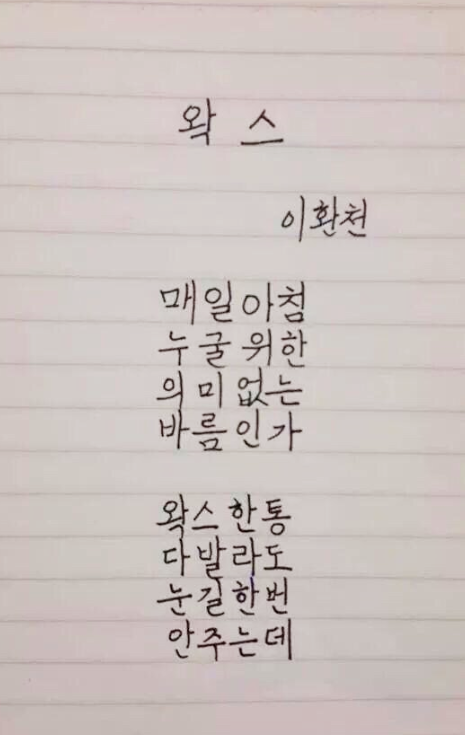 왁 스
이환천
매일아침
누굴위한
의미없는
바름인가
왁스한통
다발라도
눈길한번
안주는데